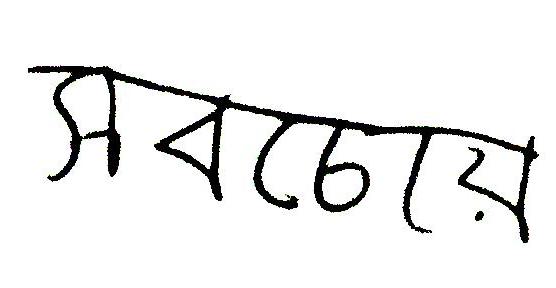 সবচেয়ে